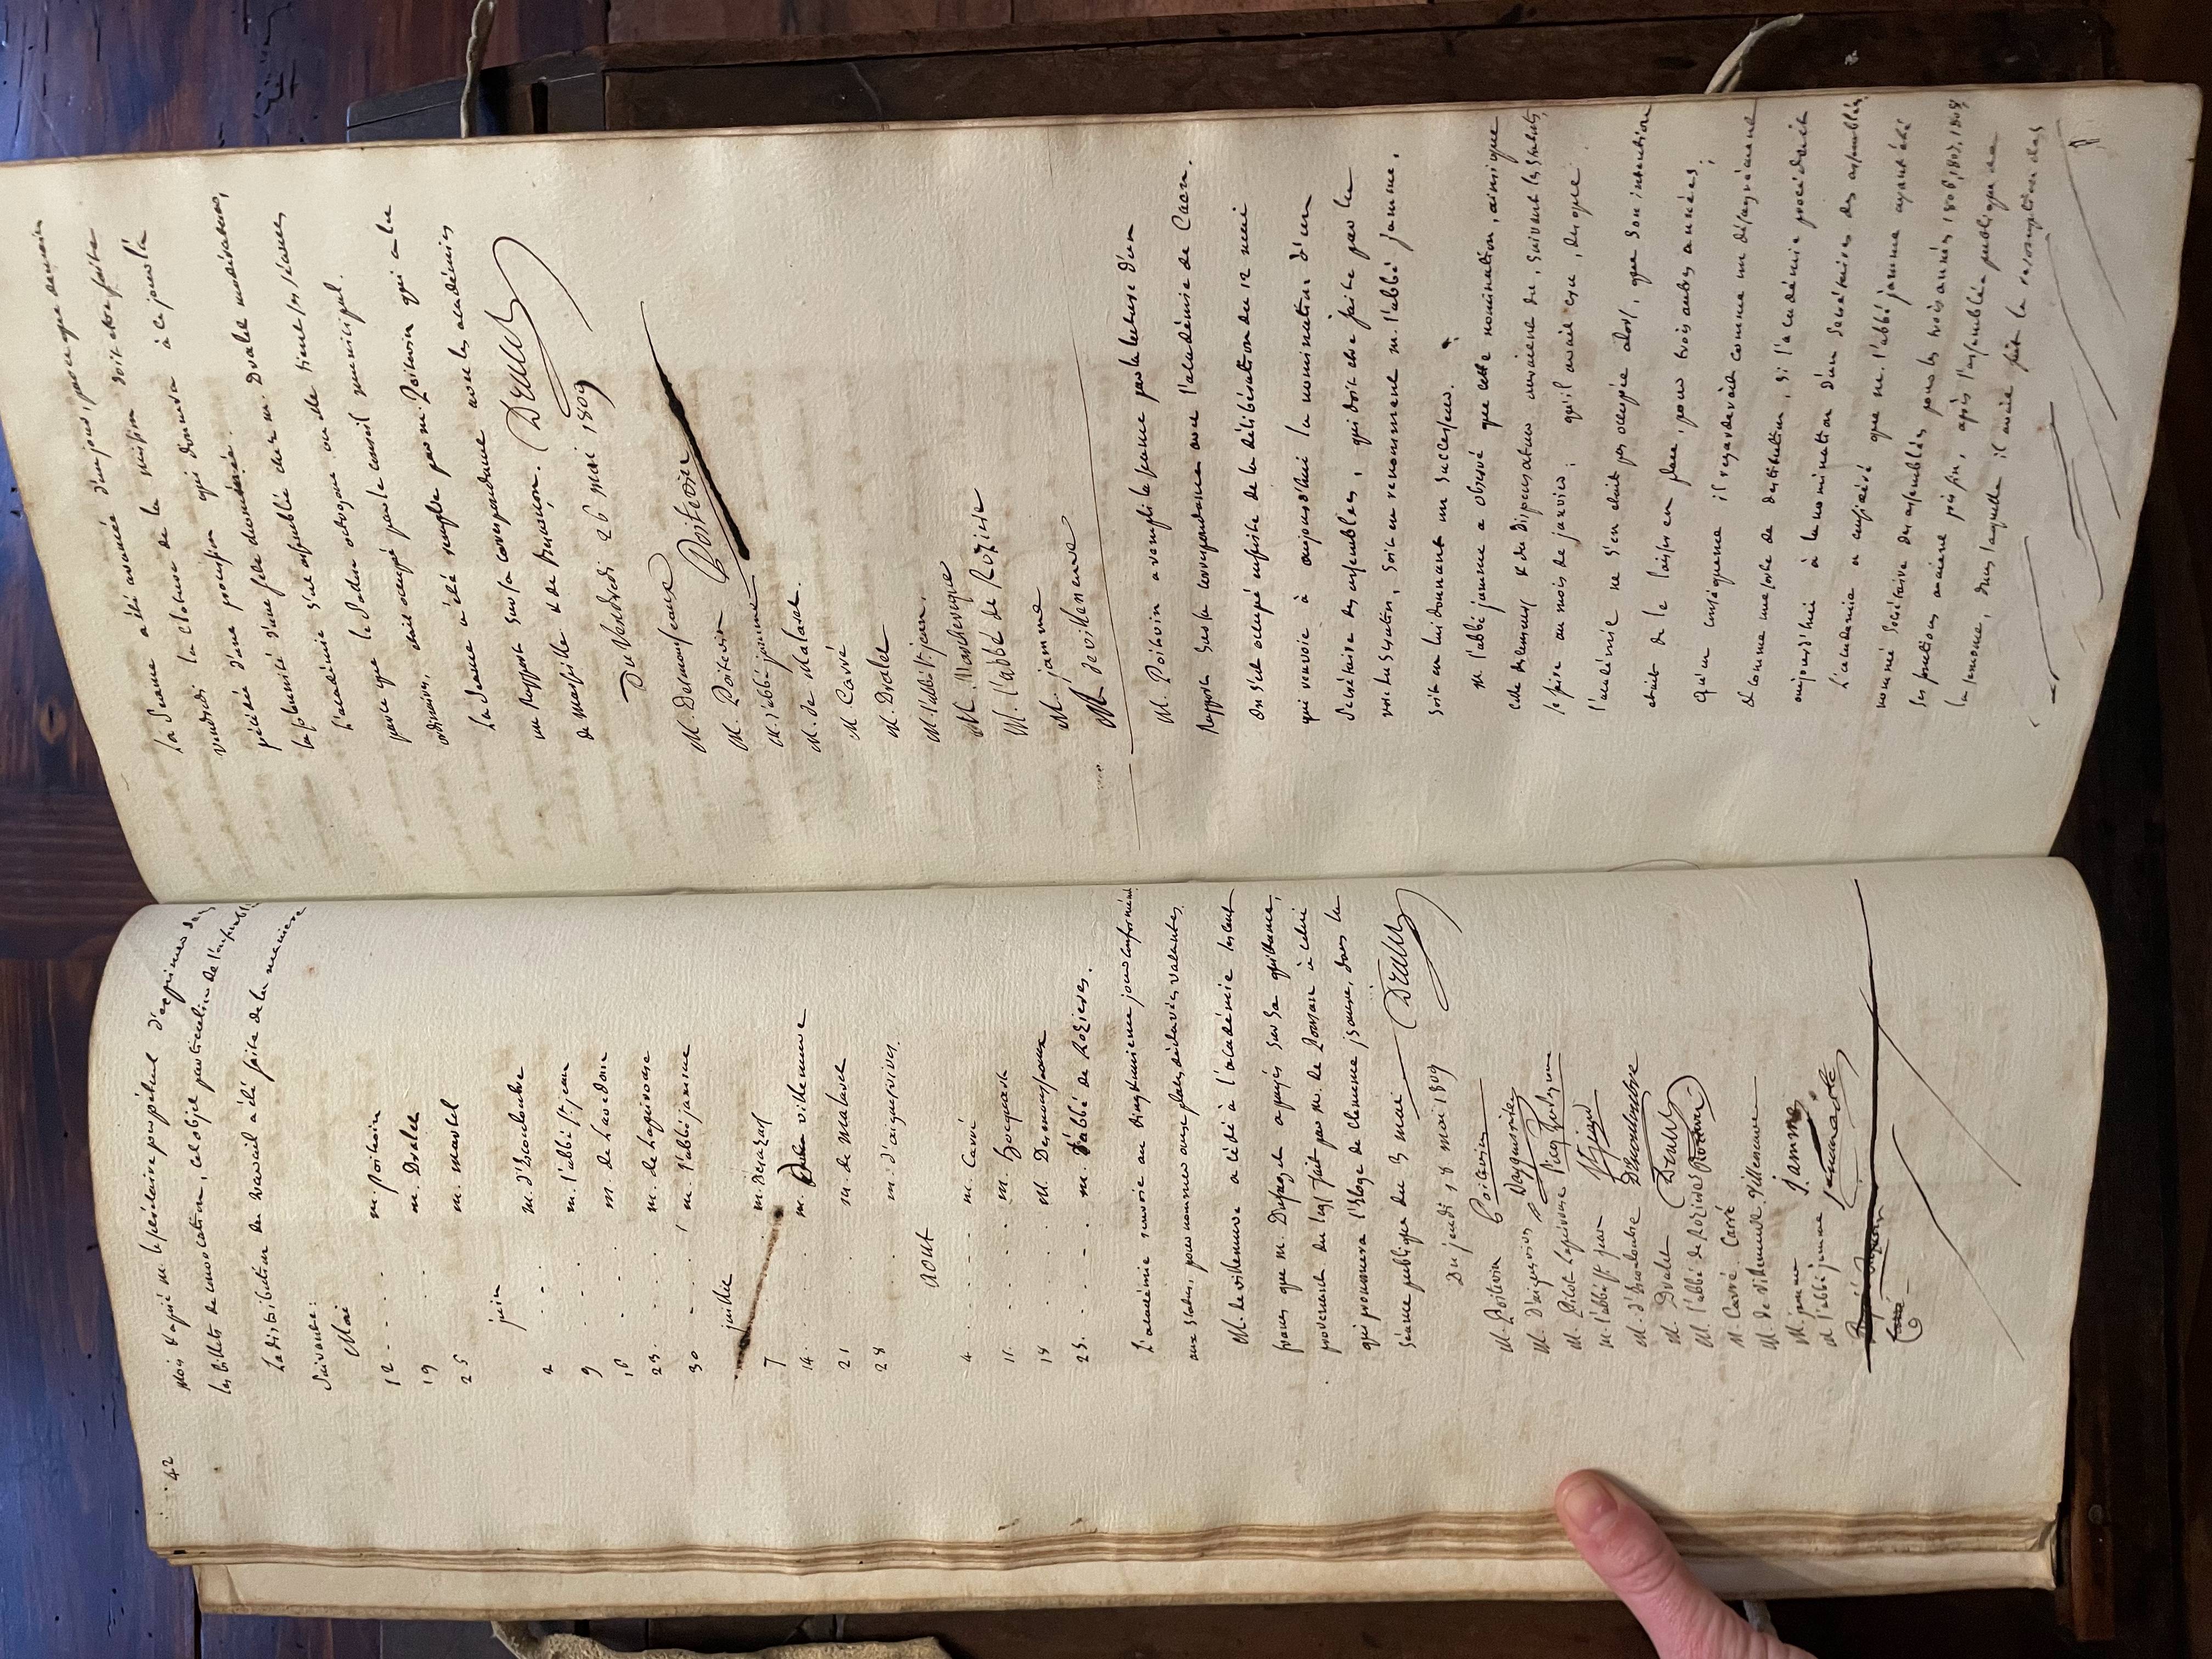 42
mois & a prié M. le secrétaire perpétuel d'exprimer dans
les billets de convocation, cet objet particulier de l'assemblée
La distribution du travail a été faite de la maniere
suivante:
Mai
12 - - . m. poitevin
19 . . m. Dralet
25 m. martel
juin
2 . - . m. d'Escouloubre
9 . . m. l'abbé St. jean
16 . . m. de Lavedan
23 . . . m. de Lapeirouse
30 . - . m. l'abbé jamme
juillet
7 . . m. Desazars
14 . . . m. de villeneuve
21 . . m. de malaret
28 . . m. d'aiguesvives.
aout
4 . . . - - m. Carré
11 . . . . . m. hocquart
18 . . . . M. Desmousseaux
25 . . . - . m. l'abbé de Rozieres.
L'académie renvoie au dixhuitieme jour conformément
aux statuts, pour nommer aux places déclarées vacantes.
M. de villeneuve a cédé à l'académie les cent
francs que M. Dufaget a payés sur sa quittance,
provenant du legs fait par M. de Ponsan à celui
qui prononcera l'Eloge de Clemence isaure, dans la
séance publique du 3 mai Dralet
Du jeudi 18 mai 1809
M. Poitevin Poitevin
M. D'aiguesvives Daiguesvives
M. Picot Lapeirouse Picot Lapeyrouse
M. l'abbé St jean St jean
M. d'Escouloubre Descouloubre
M. Dralet Dralet
M. l'abbé de Rozieres Rozieres
M. Carré Carré
M. de Villeneuve Villeneuve
M. jamme jamme
M. l'abbé jamme
La séance a été avancée d'un jour, parce que demain
vendredi la cloture de la mission doit etre faite
précédée d'une procession qui donnera à ce jour là
la solemnité d'une fête
L'académie s'est assemblée chez M. Dralet modérateur,
parce que le Salon octogone où elle tient ses séances
ordinaires, était occupé par le conseil municipal.
La séance a été remplie par M. Poitevin qui a lu
un Rapport sur la correspondance avec les académies
de marseille & de Besançon. Dralet
Du Vendredi 26 mai 1809
M. Desmousseaux
M. Poitevin Poitevin
M. l'abbé jamme
M. de Malaret.
M. Carré
M. Dralet
M. l'abbé St. jean.
M. l'abbé de Roziere
M. jamme
M. de villeneuve
M. Poitevin a rempli la séance par la lecture d'un
Rapport sur la correspondance avec l'académie de Caen.
On s'est occupé ensuite de la délibération du 12 mai
qui renvoie à aujourd'hui la nomination d'un
Secrétaire des assemblées, qui doit etre faite par la
voie du scrutin, soit en renommant M. l'abbé jamme,
soit en lui donnant un successeur.
M. l'abbé jamme a observé que cette nomination, ainsi que
celle du & du Dispensateur auraient du, suivant les statuts,
se faire au mois de janvier; qu'il avait cru, dès que
l'académie ne s'en était pas occupée alors, que son intention
était de le laisser en place, pour trois autres années;
Qu'en conséquence il regarderait comme un désagrément
& comme une sorte de destitution, si l'académie procédait
aujourd'hui à la nomination d'un Secrétaire des assemblées
L'académie a considéré que M. l'abbé jamme ayant été
nommé Secrétaire des assemblées pour les trois années 1806, 1807, 1808
ses fonctions avaient pris fin, après l'assemblée publique de
la semonce, dans laquelle il avait fait la